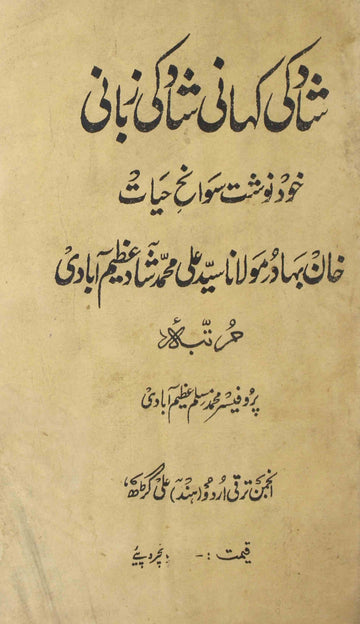 شاد کی کہانی شاد کی زبانی
خود نوشت سوانح حیات
خان بہادر مولانا سید علی محمد شاد عظیم آبادی
مرتبہ
پروفیسر محمد مسلم عظیم آبادی
انجمن ترقی اردو (ہند) علی گڑھ
قیمت :-